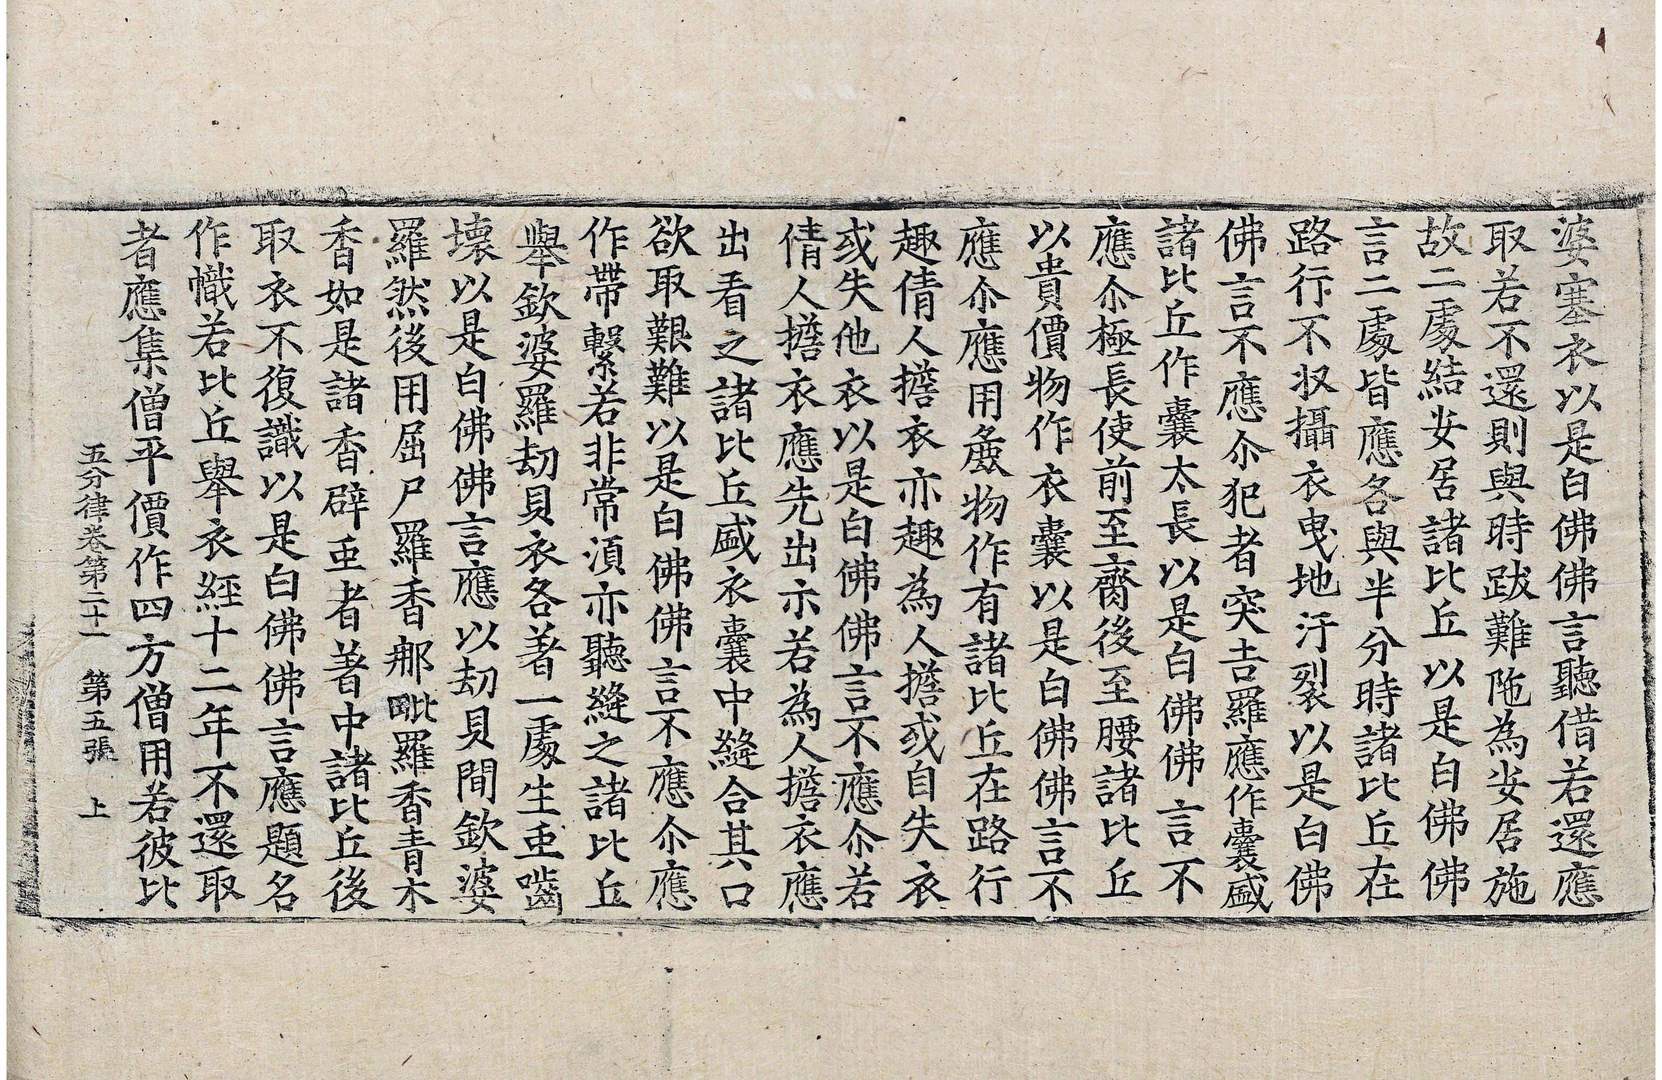 婆塞衣以是白佛佛言聽借若還應
取若不還則與時跋難陁為安居施
故二處結安居諸比丘以是白佛佛
言二處皆應各與半分時諸比丘在
路行不収攝衣曳地汙裂以是白佛
佛言不應尒犯者突吉羅應作囊盛
諸比丘作囊太長以是白佛佛言不
應尒極長使前至齊後至腰諸比丘
以貴價物作衣囊以是白佛佛言不
應尒應用麁物作有諸比丘在路行
趣倩人擔衣亦趣為人擔或自失衣
或失他衣以是白佛佛言不應尒若
倩人擔衣應先出示若為人擔衣應
出看之諸比丘盛衣囊中縫合其口
欲取艱難以是白佛佛言不應尒應
作帶繫若非常湏亦聽縫之諸比丘
舉欽婆羅劫貝衣各著一處生䖝嚙
壞以是白佛佛言應以劫貝間欽婆
羅然後用屈尸羅香䣋毗羅香青木
香如是諸香辟䖝者著中諸比丘後
取衣不復識以是白佛佛言應題名
作幟若比丘舉衣經十二年不還取
者應集僧平價作四方僧用若彼比
五分律卷第二十一　第五張　上